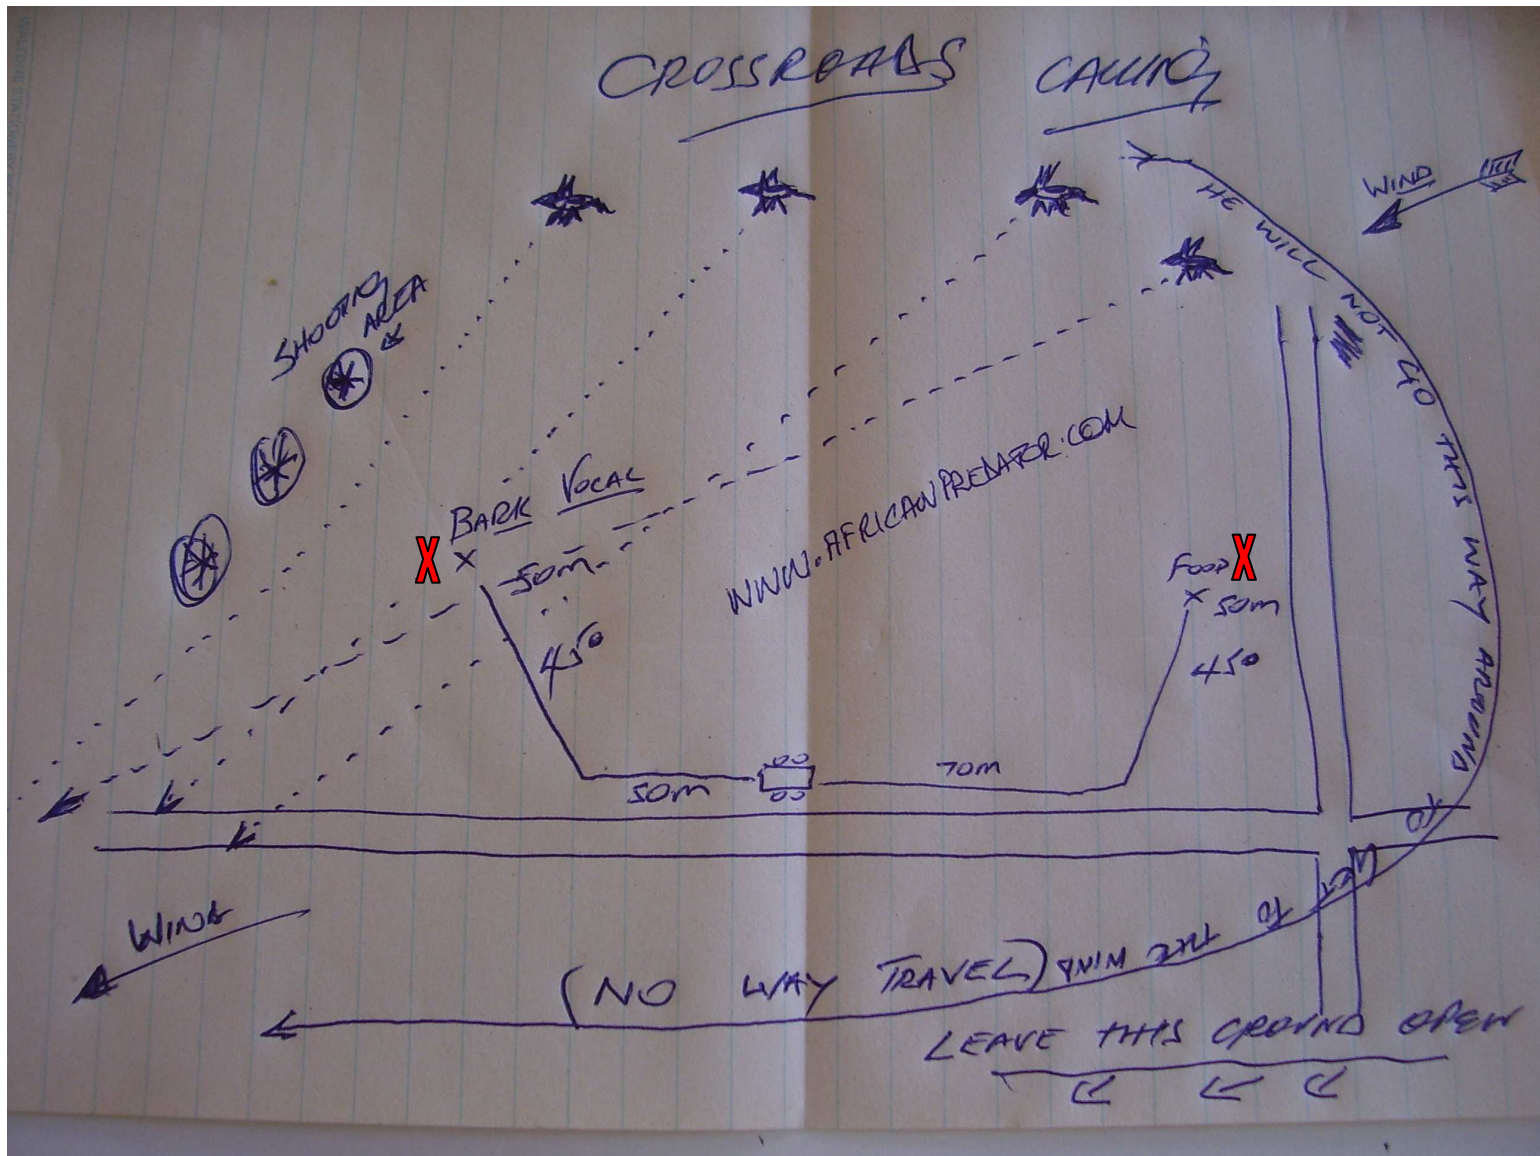 CROSSROADS CALLING
WIND
HE WILL NOT GO THIS WAY AROUND TO GET TO THE WIND
SHOOTING
AREA
BARK VOCAL
X X
50m
45°
WWW.AFRICANPREDATOR.COM
FOOD X
X 50m
45°
50m
70m
WIND
(NO WAY TRAVEL)
LEAVE THIS GROUND OPEN